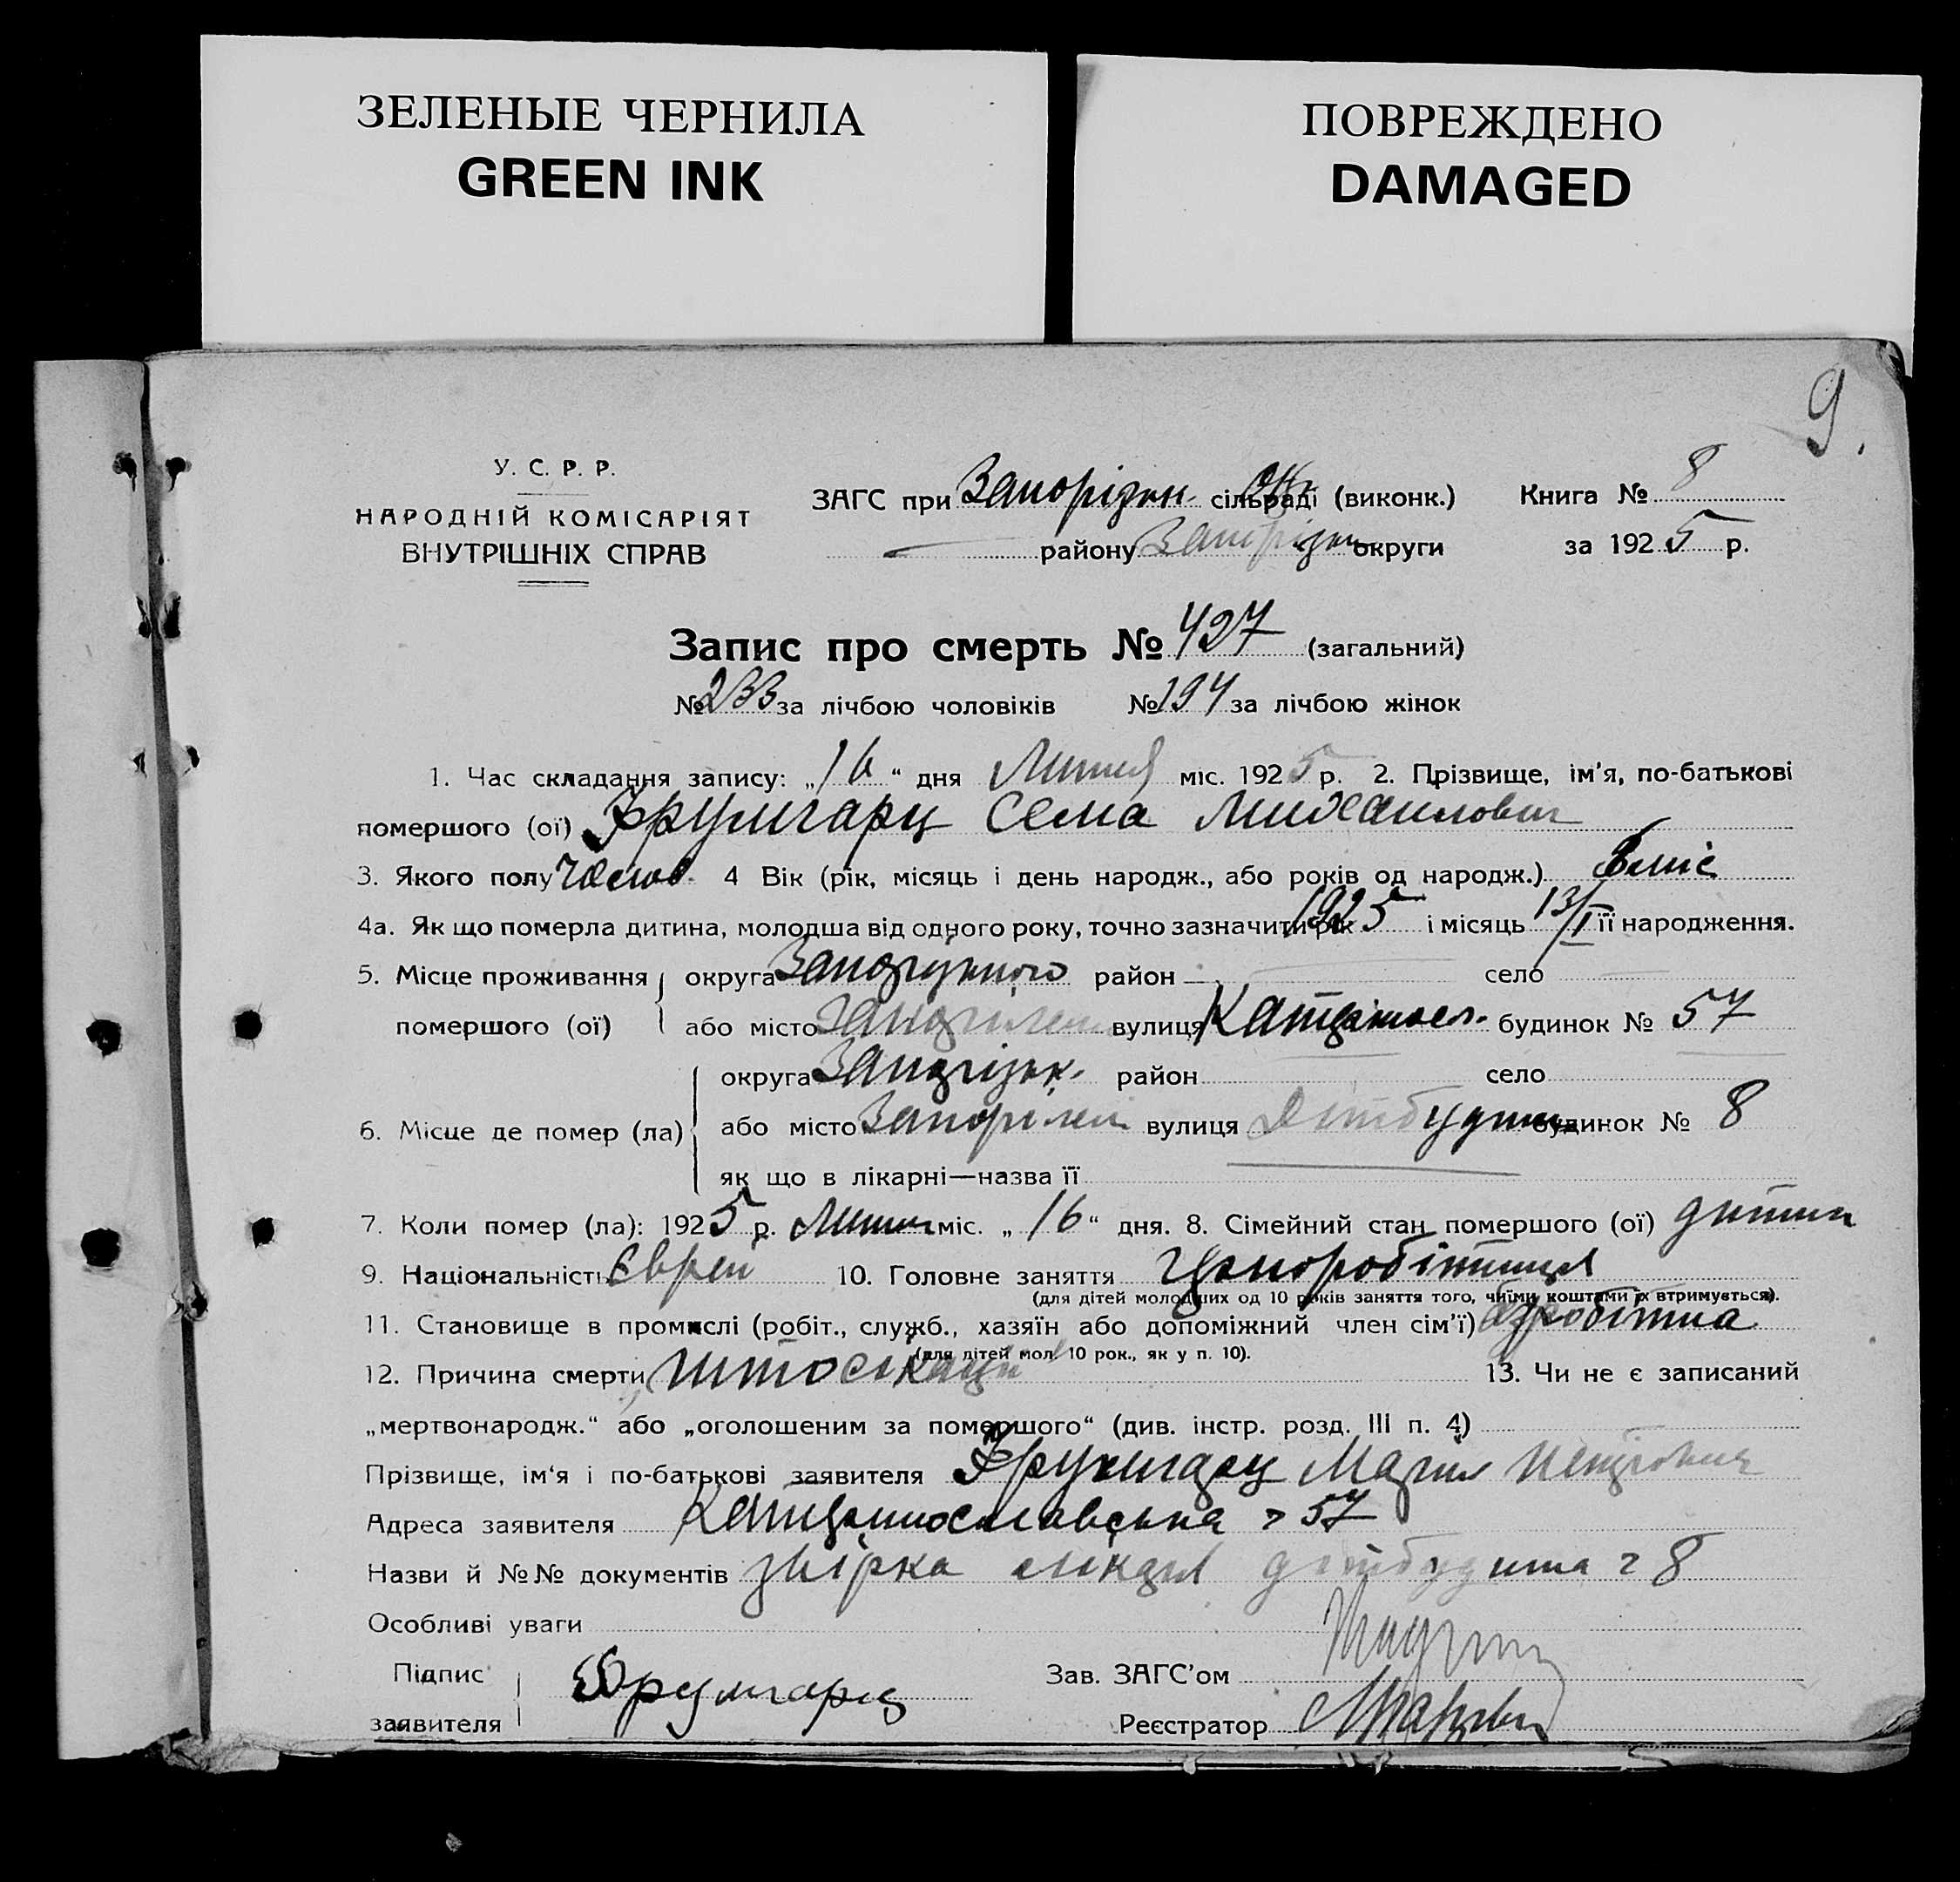 ЗЕЛЕНЫЕ ЧЕРНИЛА
GREEN INK
ПОВРЕЖДЕНО
DAMAGED
9.
У. С. Р. Р.
НАРОДНІЙ КОМІСАРІЯТ
ВНУТРІШНІХ СПРАВ
ЗАГС при Запорізьк. сільраді (виконк.) Книга № 8
району Запорізьк округи за 1925 р.
Запис про смерть № 427 (загальний)
№ 233 за лічбою чоловіків № 194 за лічбою жінок
1. Час складання запису: „16“ дня Липня міс. 1925 р. 2. Прізвище, ім'я, по-батькові
помершого (ої) Фрумгарц Сема Михайлович
3. Якого полу Чолов. 4 Вік (рік, місяць і день народж., або років од народж.) 6 міс
4а. Як що померла дитина, молодша від одного року, точно зазначити рік 1925 і місяць 13/I її народження.
5. Місце проживання округа Запоріжжого район село
помершого (ої) або місто вулиця Катериносл. будинок № 57
округа Запорізьк. район село
6. Місце де помер (ла) або місто вулиця Дитбудинок будинок № 8
як що в лікарні—назва її
7. Коли помер (ла): 1925 р. Липня міс. „16“ дня. 8. Сімейний стан помершого (ої) дитина
9. Національність Єврей 10. Головне заняття
(для дітей молодших од 10 років заняття того, чиїми коштами їх втримується).
11. Становище в промислі (робіт., служб., хазяїн або допоміжний член сім'ї)
(для дітей мол. 10 рок., як у п. 10).
12. Причина смерти 13. Чи не є записаний
„мертвонародж.“ або „оголошеним за помершого“ (див. інстр. розд. III п. 4)
Прізвище, ім'я і по-батькові заявителя Фрумгарц Марія
Адреса заявителя Катеринославська 57
Назви й №№ документів лікаря дитбудинка 8
Особливі уваги
Підпис
заявителя Фрумгарц
Зав. ЗАГС'ом
Реєстратор